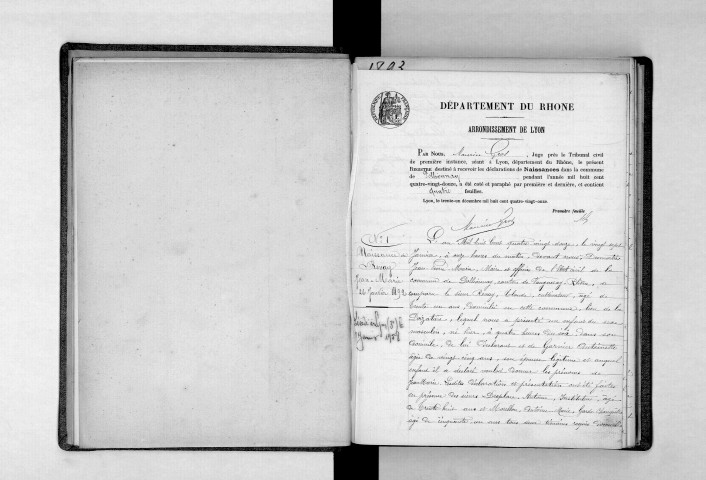 1892
DÉPARTEMENT DU RHONE
ARRONDISSEMENT DE LYON
PAR NOUS, Maurice , Juge près le Tribunal civil
de première instance, séant à Lyon, département du Rhône, le présent
REGISTRE destiné à recevoir les déclarations de Naissances dans la commune
de Pollionnay pendant l'année mil huit cent
quatre-vingt-douze, a été coté et paraphé par première et dernière, et contient
quatre feuilles.
Lyon, le trente-un décembre mil huit cent quatre-vingt-onze.
Première feuille
Maurice
N° 1
Naissance de
Jean Marie
26 Janvier 1892
L'an Mil huit cent quatre vingt douze, le vingt sept
Janvier, à onze heures du matin, Devant nous,
Jean Maire et officier de l'Etat civil de la
commune de Pollionnay, canton de Vaugneray, Rhône, a
comparu le sieur Claude, cultivateur, âgé de
trente un ans, domicilié en cette commune, lieu de la
lequel nous a présenté un enfant du sexe
masculin, né hier, à quatre heures du soir dans son
domicile, de lui déclarant et de Antoinette
âgée de vingt cinq ans, son épouse légitime et auquel
enfant il a déclaré vouloir donner les prénoms de
Jean Marie. Lesdites déclaration et présentation ont été faites
en présence des sieurs Antoine, Instituteur, âgé
de trente huit ans et Antoine Marie, Garde champêtre
âgé de cinquante un ans tous deux témoins requis domiciliés